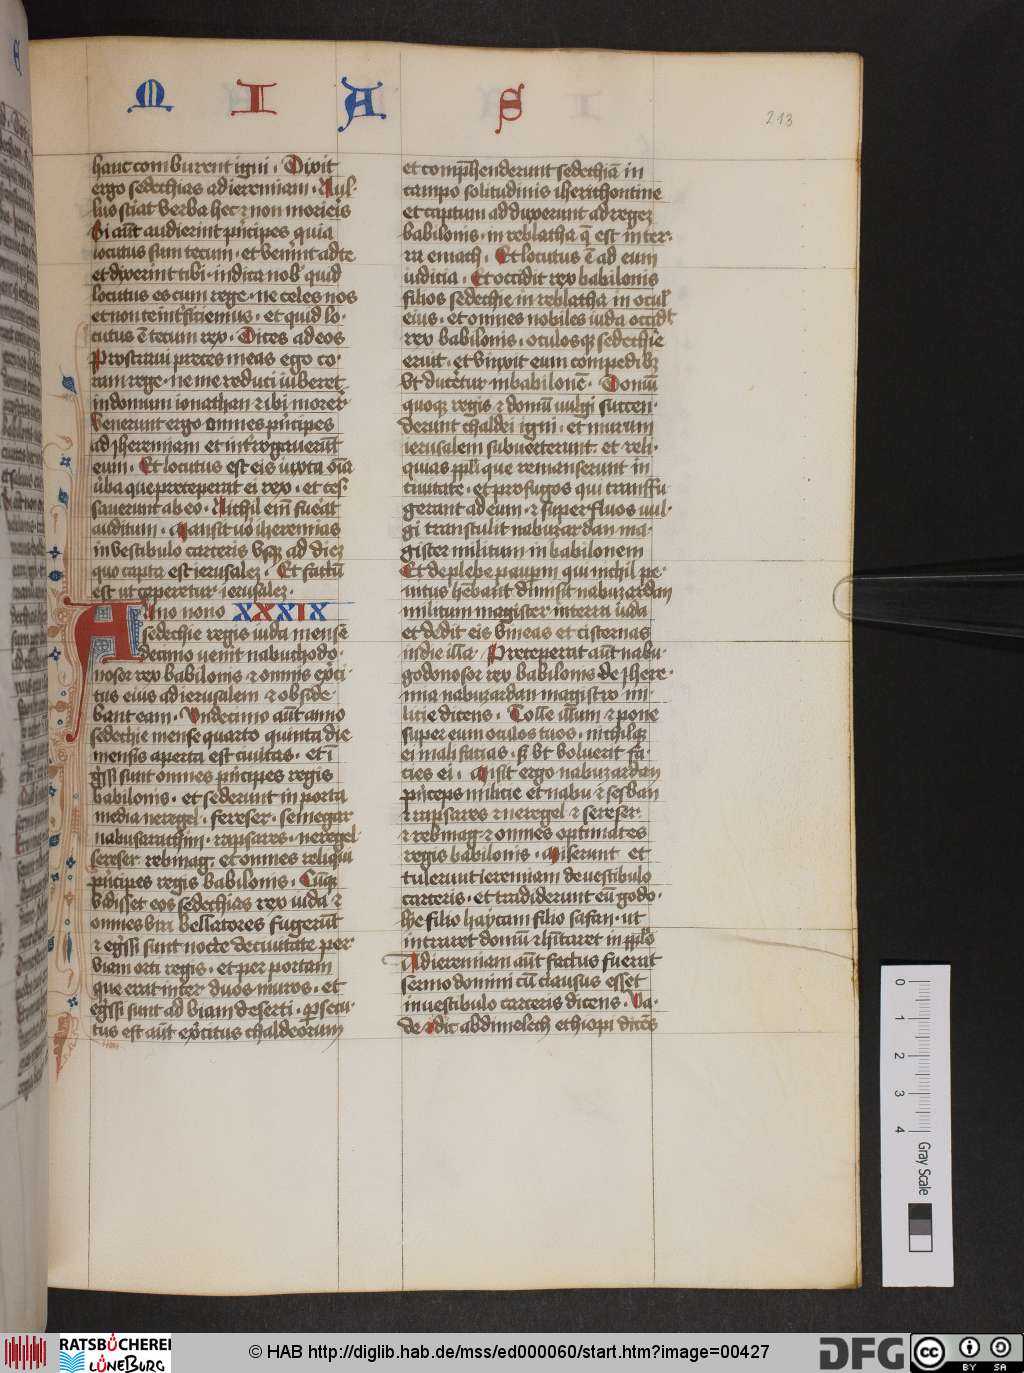 M I A S
213
hanc comburent igni. Dixit
ergo sedechias ad ieremiam. Nul-
lus sciat verba hec et non morieris
Si aūt audierint principes quia
locutus sum tecum. et venerint ad te
et dixerint tibi. indica nob quid
locutus es cum rege. ne celes nos
et non te interficiemus. et quid lo-
cutus ē tecum rex. Dices ad eos
Prostravi preces meas ego co-
ram rege. ne me reduci iuberet
in domum ionathan et ibi morer
Venerunt ergo omnes principes
ad Jheremiam et interrogaverūt
eum. Et locutus est eis iuxta oīa
ūba que preceperat ei rex. et ces-
saverunt ab eo. Nichil enī fuerat
auditum. Mansit vo iheremias
in vestibulo carceris vsque ad diez
quo capta est ierusalez. Et factū
est ut caperetur ierusalez.
Anno nono XXXIX
sedechie regis iuda mense
decimo venit nabuchodo-
nosor rex babilonis et omnis exerci-
tus eius ad ierusalem et obside-
bant eam. Vndecimo aūt anno
sedechie mense quarto quinta die
mensis aperta est civitas. et ī
gressi sunt omnes principes regis
babilonis. et sederunt in porta
media neregel. fereser. semegar
nabusarachim. rapsares. neregel
sereser. rebmag. et omnes reliqui
principes regis babilonis. Cūque
vidisset eos sedechias rex iuda et
omnes viri bellatores fugerūt
et egressi sunt nocte de civitate per
viam orti regis. et per portam
que erat inter duos muros. et
egressi sunt ad viam deserti. persecu-
tus est aūt exercitus chaldeorum
et comprehenderunt sedechiā in
campo solitudinis iherichontine
et captum adduxerunt ad regez
babilonis. in reblatha q̄ est in ter-
ra emath. Et locutus ē ad eum
iudicia. Et occidit rex babilonis
filios sedechie in reblatha in ocul
eius. et omnes nobiles iuda occidit
rex babilonis. oculosque sedechie
eruit. et vinxit eum compedibz
vt duceretur in babilonē. Domū
quoque regis et domū vulgi succen-
derunt chaldei igni. et murum
ierusalem subverterunt. et reli-
quias ppli que remanserunt in
civitate. et profugos qui transfu
gerant ad eum. et superfluos vul-
gi transtulit nabuzardan ma-
gister militum in babilonem
Et de plebe pauperum qui nichil pe-
nitus hēbant dimisit nabuzardan
militum magister in terra iuda
et dedit eis vineas et cisternas
in die illa. Preceperat aūt nabu-
godonosor rex babilonis de Jhere-
mia nabuzardan magistro mi-
licie dicens. Tolle illum et pone
super eum oculos tuos. nichilque
ei mali facias. s vt voluerit fa-
cies ei. Misit ergo nabuzardan
princeps milicie et nabu et sesban
et rapsares et neregel et sereser
et rebmag et omnes optimates
regis babilonis. Miserunt et
tulerunt ieremiam de vestibulo
carceris. et tradiderunt eū godo-
lie filio haycam filio safan. ut
intraret domū et hītaret in pplo
Ad ieremiam aūt factus fuerat
sermo domini cū clausus esset
in vestibulo carceris dicens. Va-
de et dic abdimelech ethiopi dicēs
0 1 2 3 4 Gray Scale
RATSBÜCHEREI
LÜNEBURG
© HAB http://diglib.hab.de/mss/ed000060/start.htm?image=00427
DFG
cc BY SA